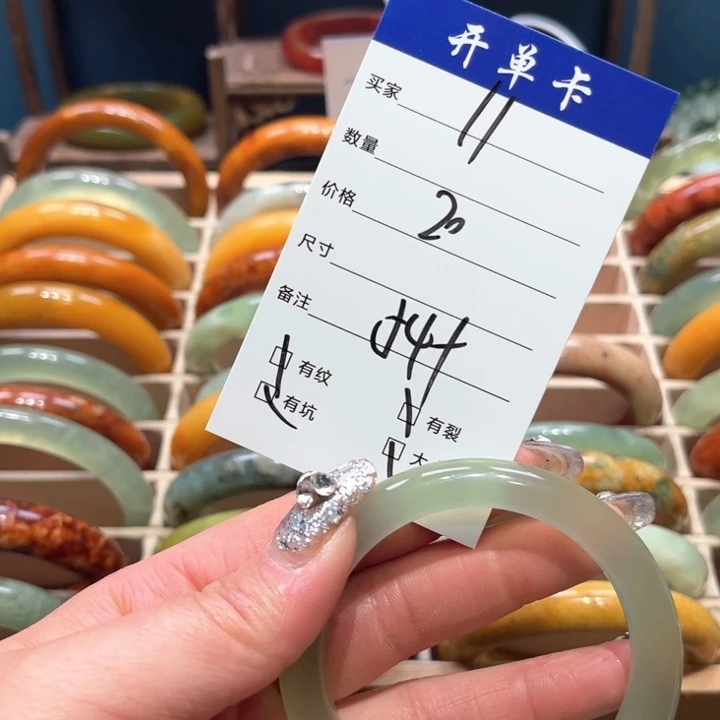 开单卡
买家 11
数量
价格 20
尺寸
备注
有纹
有坑
有裂
大